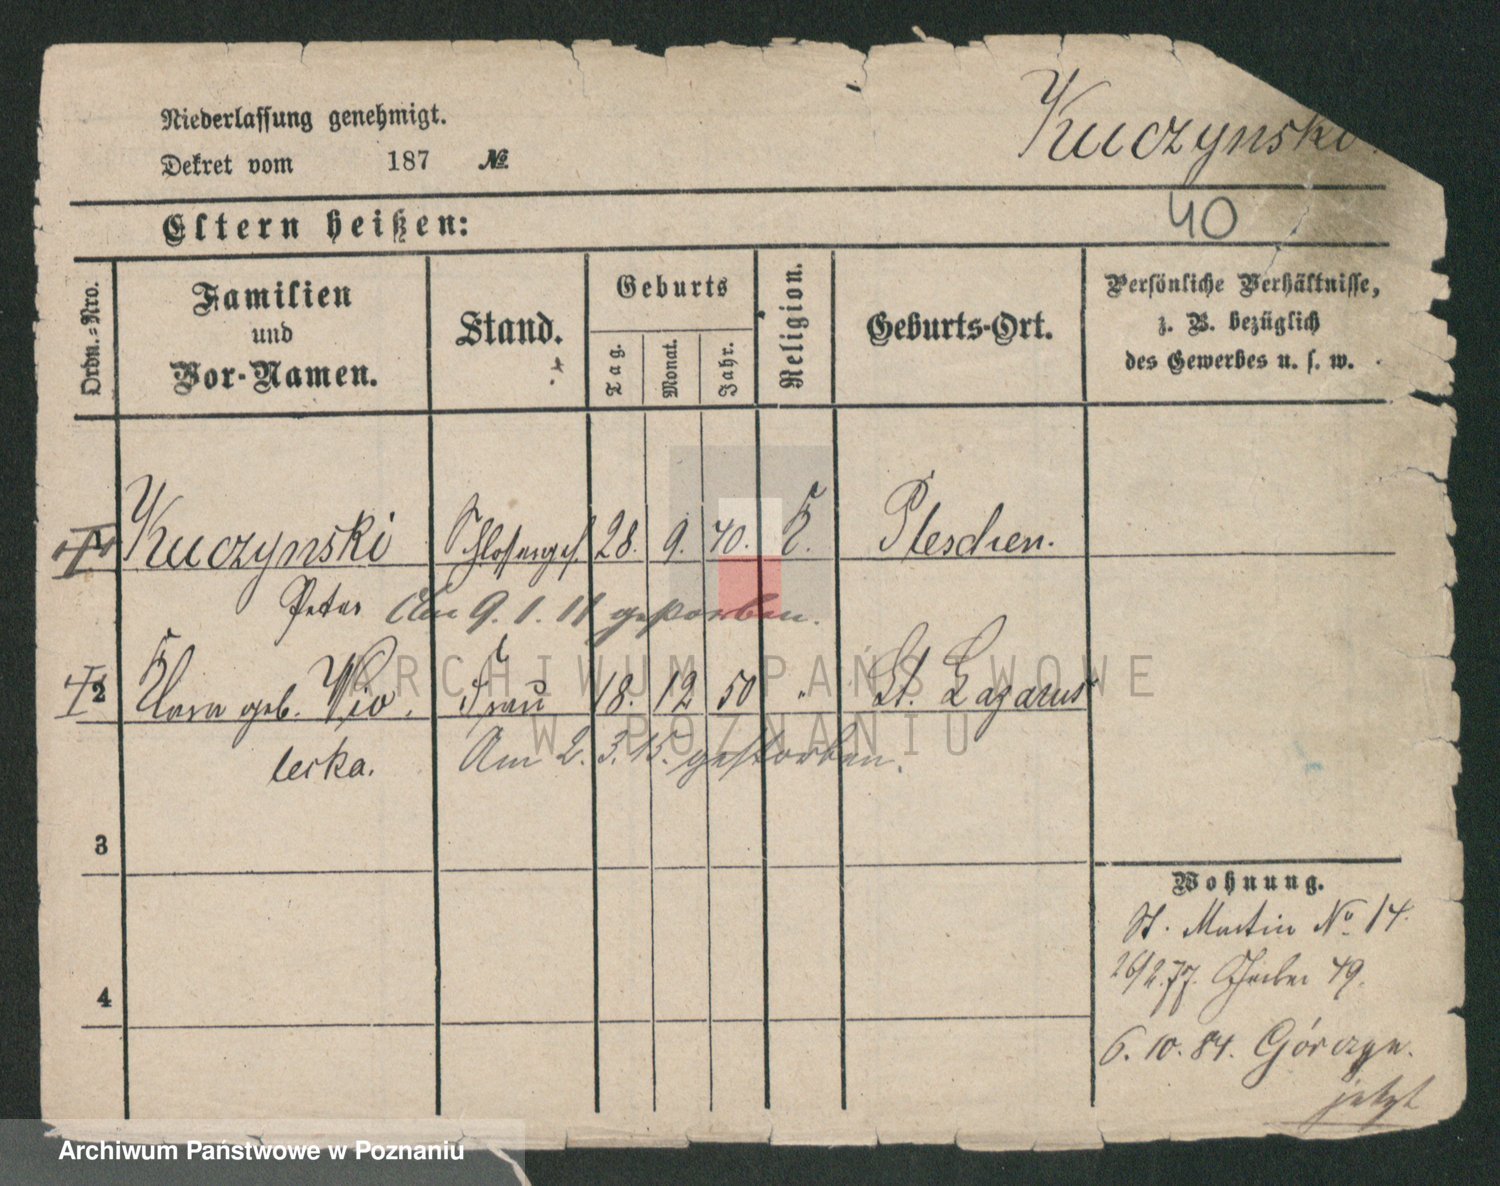 Niederlassung genehmigt.
Kuczynski
Dekret vom 187 №
Eltern heißen:
40
Ordn.-Nro.
Familien
und
Vor-Namen.
Stand.
Geburts
Tag.
Monat.
Jahr.
Religion.
Geburts-Ort.
Persönliche Verhältnisse,
z. B. bezüglich
des Gewerbes u. s. w.
Kuczynski 28. 9. 40. K. Pleschen.
Peter Am 9.1.11 gestorben.
2 Clara geb. Wio Frau 18. 12 50 " St. Lazarus
lecka. Am 2.3.15. gestorben.
3
4
Wohnung.
St. Martin No 14.
26/2.77. 49.
6.10.84. Górczyn.
jetzt
ARCHIWUM PAŃSTWOWE
W POZNANIU
Archiwum Państwowe w Poznaniu